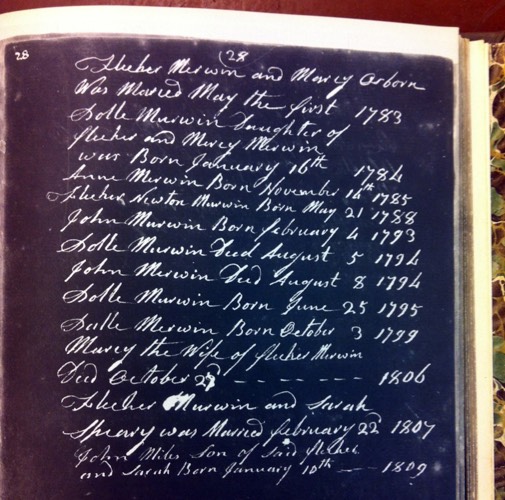 28
(28
Flecher Merwin and Marcy Osborn
Was Maried May the first 1783
Dolle Murwin Daughter of
flecher and Mercy Merwin
was Born January 16th 1784
Anne Merwin Born November 14th 1785
Flecher Newton Murwin Born May 21 1788
John Murwin Born february 4 1793
Dolle Murwin Died August 5 1794
John Merwin Died August 8 1794
Dolle Murwin Born June 25 1795
Salle Merwin Born October 3 1799
Marcy the Wife of flecher Merwin
Died October 1806
Flecher Murwin and Sarah
was Maried february 22 1807
John Miles Son of Said flecher
and Sarah Born January 10th 1809